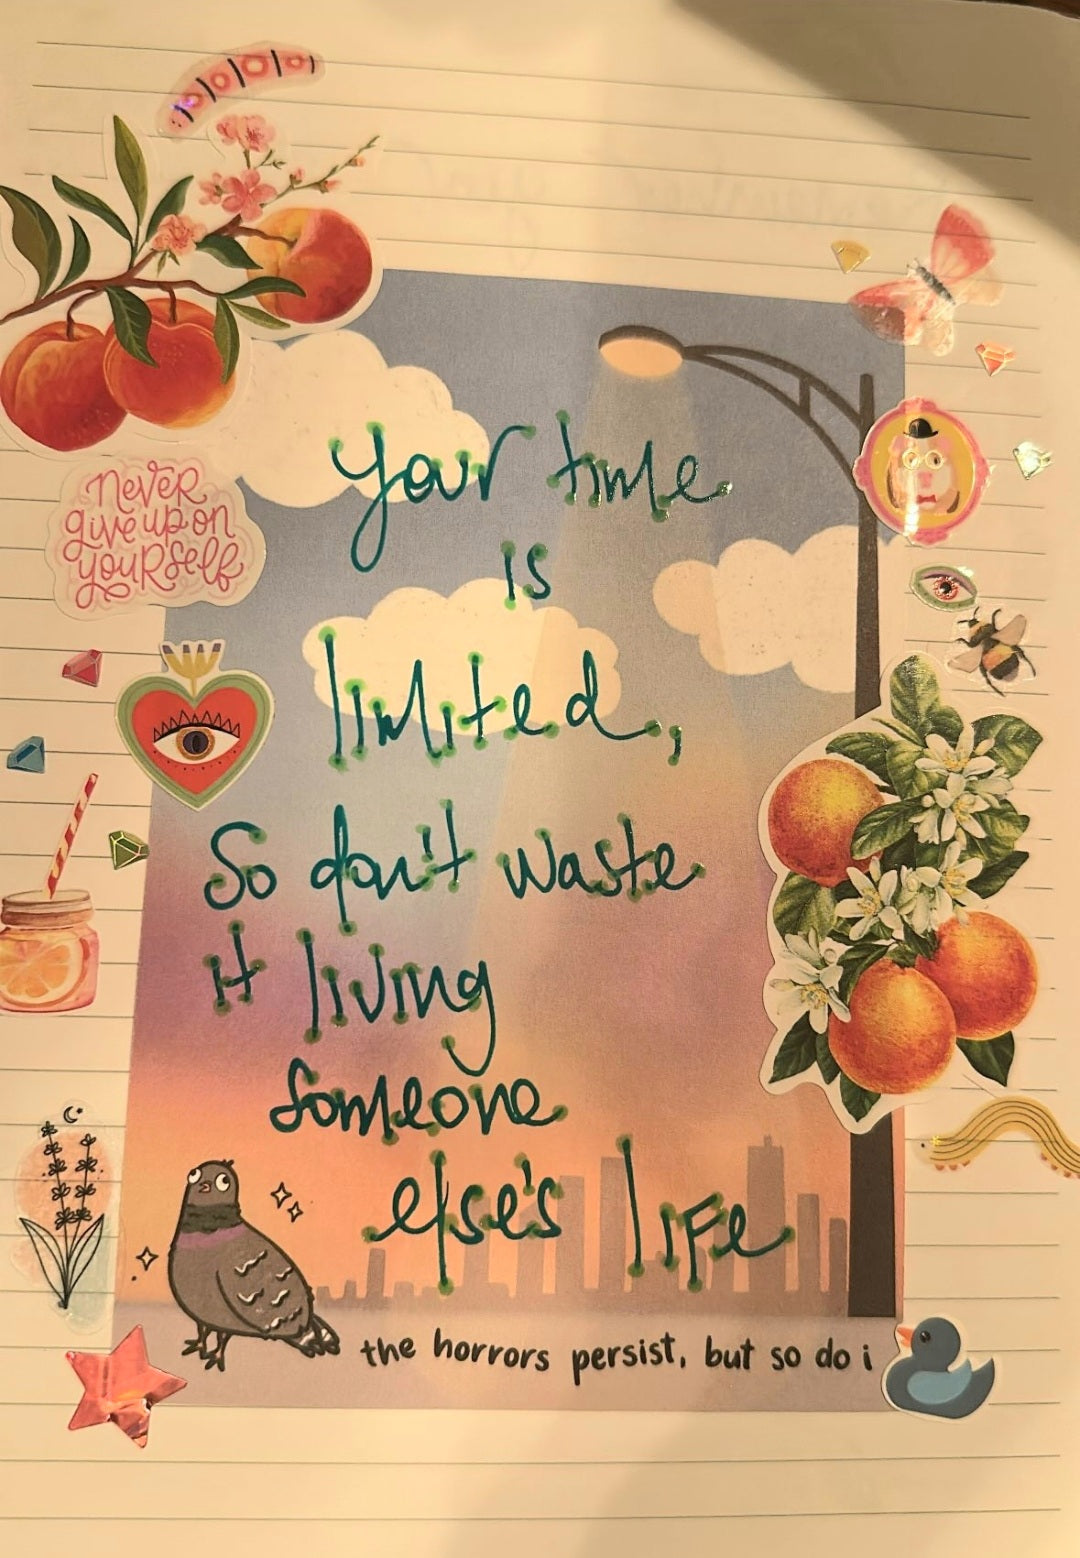 never
give up on
yourself
Your time
is
limited,
So don't waste
it living
someone
else's life
the horrors persist, but so do i